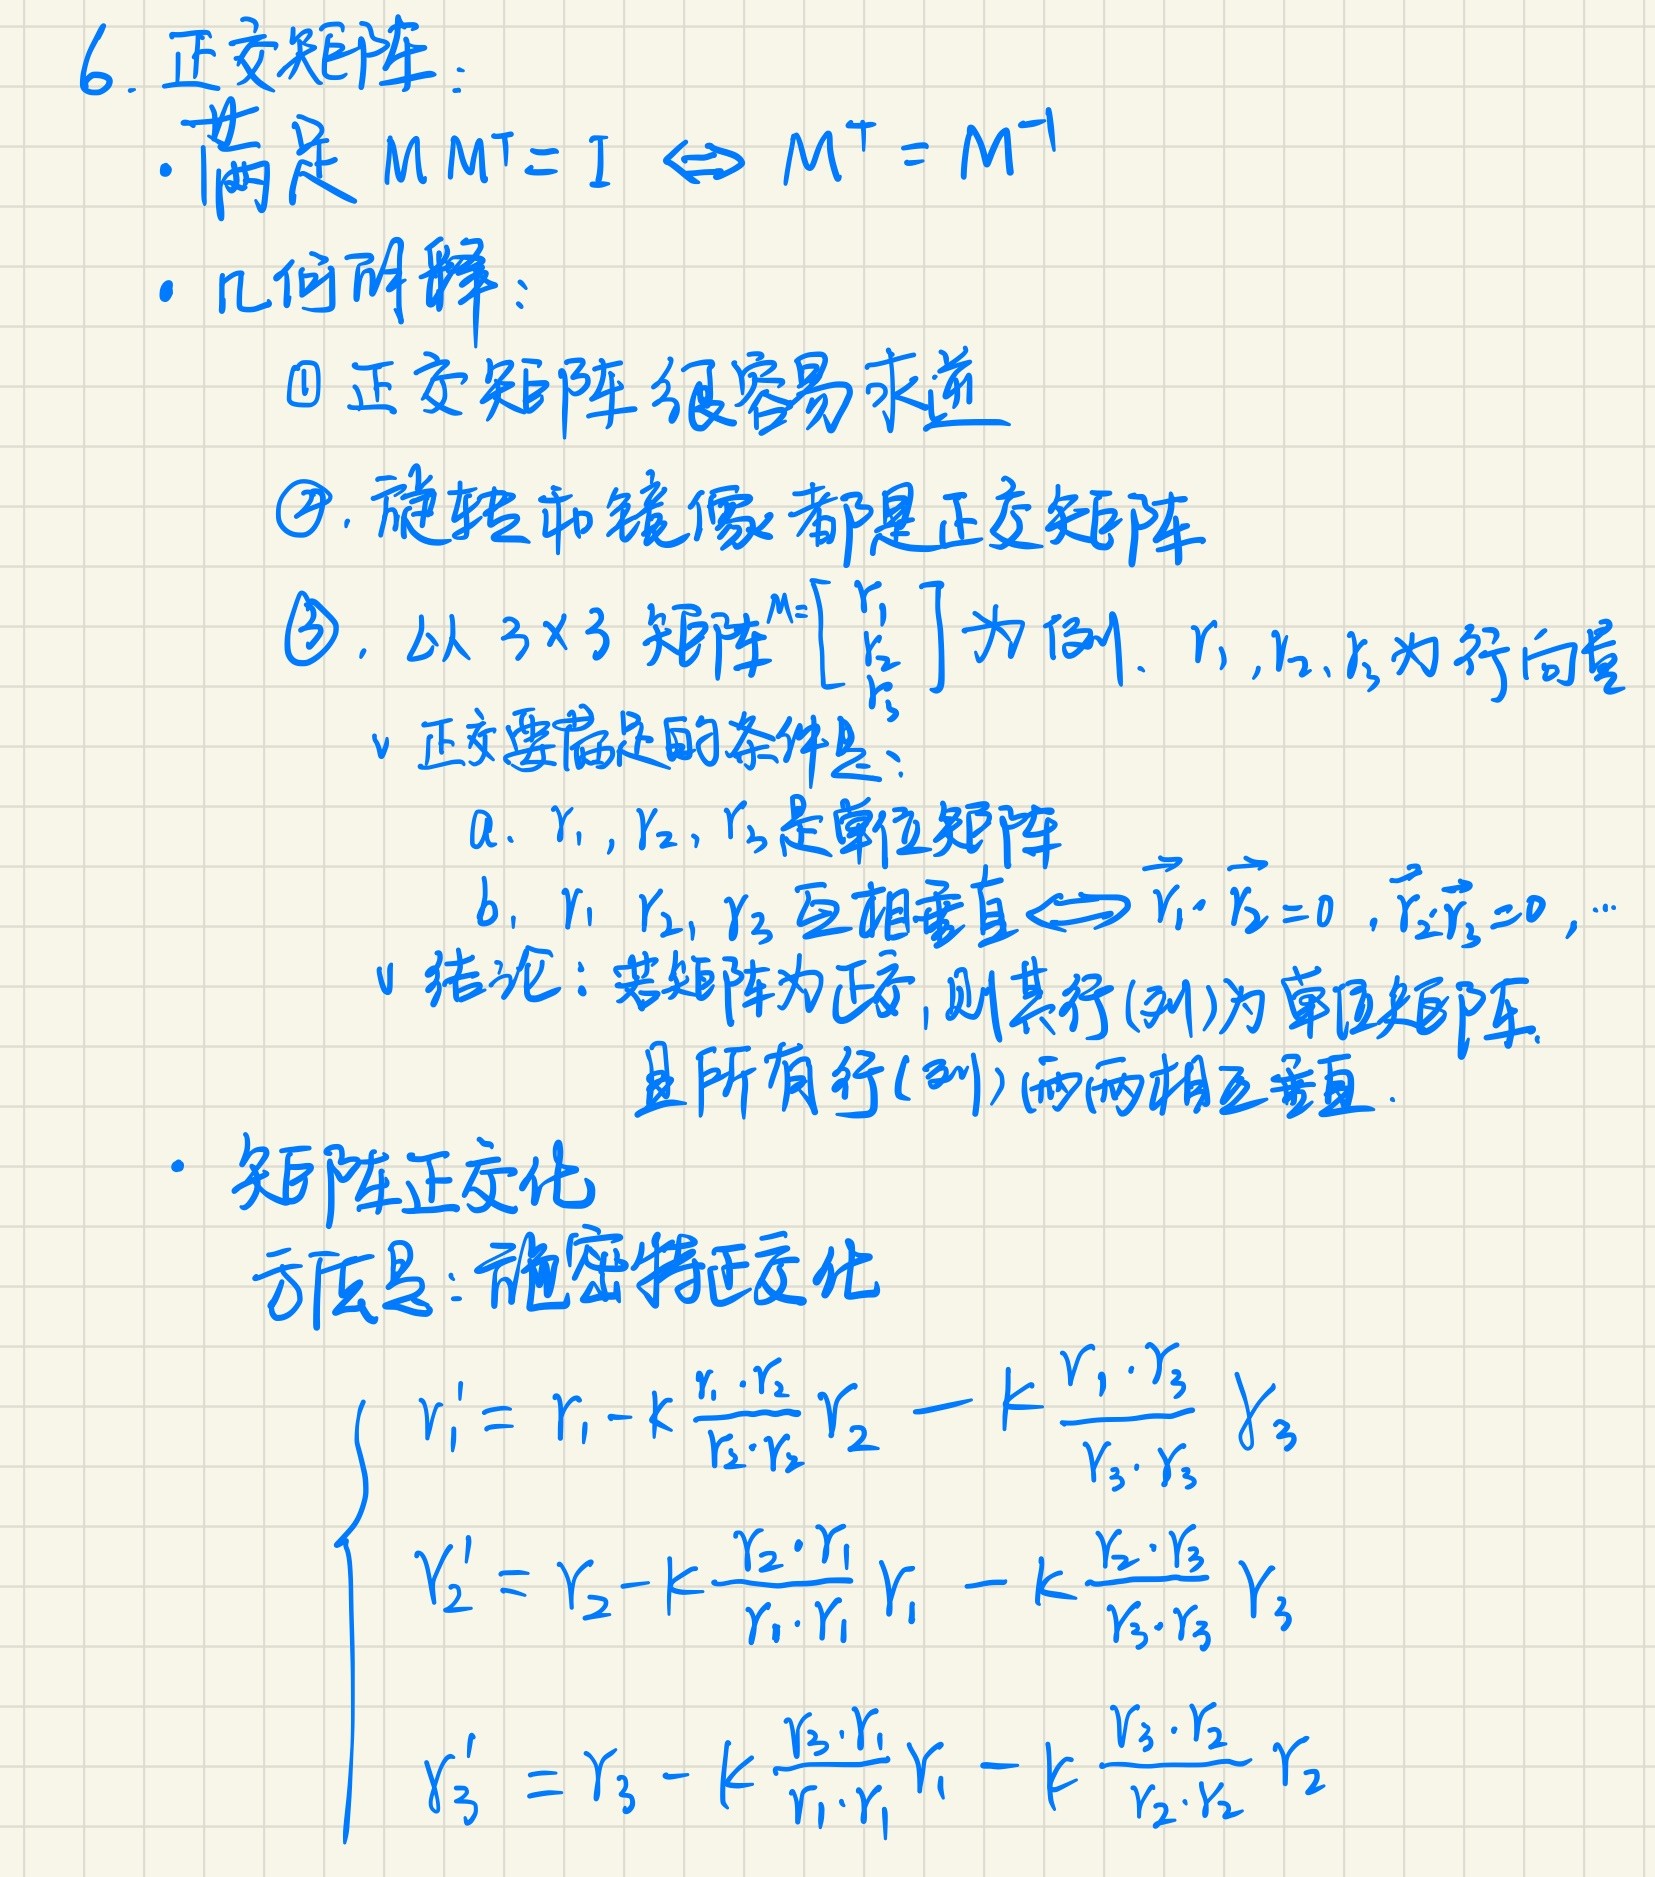 6. 正交矩阵:
· 满足 M Mᵀ = I ⇔ Mᵀ = M⁻¹
· 几何解释:
① 正交矩阵很容易求逆
②. 旋转和镜像都是正交矩阵
③. 以 3×3 矩阵 M = [r₁ r₂ r₃] 为例. r₁, r₂, r₃ 为行向量
∨ 正交要满足的条件是:
a. r₁, r₂, r₃ 是单位矩阵
b. r₁ r₂, r₃ 互相垂直 ⇔ r⃗₁·r⃗₂ = 0, r⃗₂·r⃗₃ = 0, …
∨ 结论: 若矩阵为正交, 则其行(列)为单位矩阵.
且所有行(列)两两相互垂直.
· 矩阵正交化
方法是: 施密特正交化
r₁' = r₁ - k (r₁·r₂)/(r₂·r₂) r₂ - k (r₁·r₃)/(r₃·r₃) r₃
r₂' = r₂ - k (r₂·r₁)/(r₁·r₁) r₁ - k (r₂·r₃)/(r₃·r₃) r₃
r₃' = r₃ - k (r₃·r₁)/(r₁·r₁) r₁ - k (r₃·r₂)/(r₂·r₂) r₂